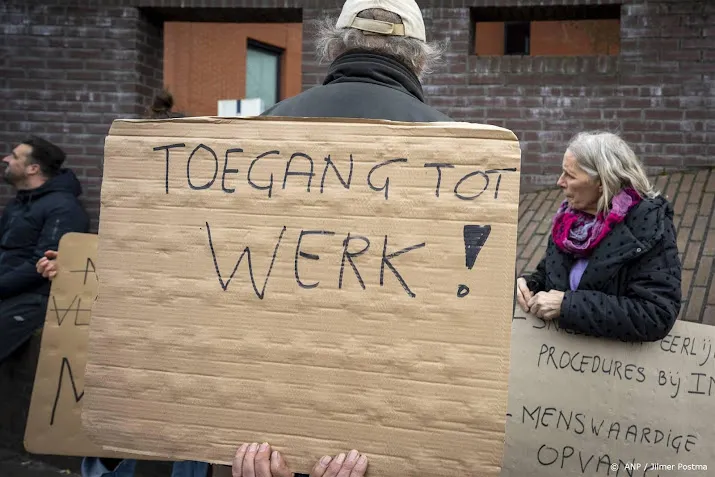 TOEGANG TOT
WERK!
EERLIJ
PROCEDURES BIJ IN
- MENSWAARDIGE
OPVANG
© ANP / Jilmer Postma